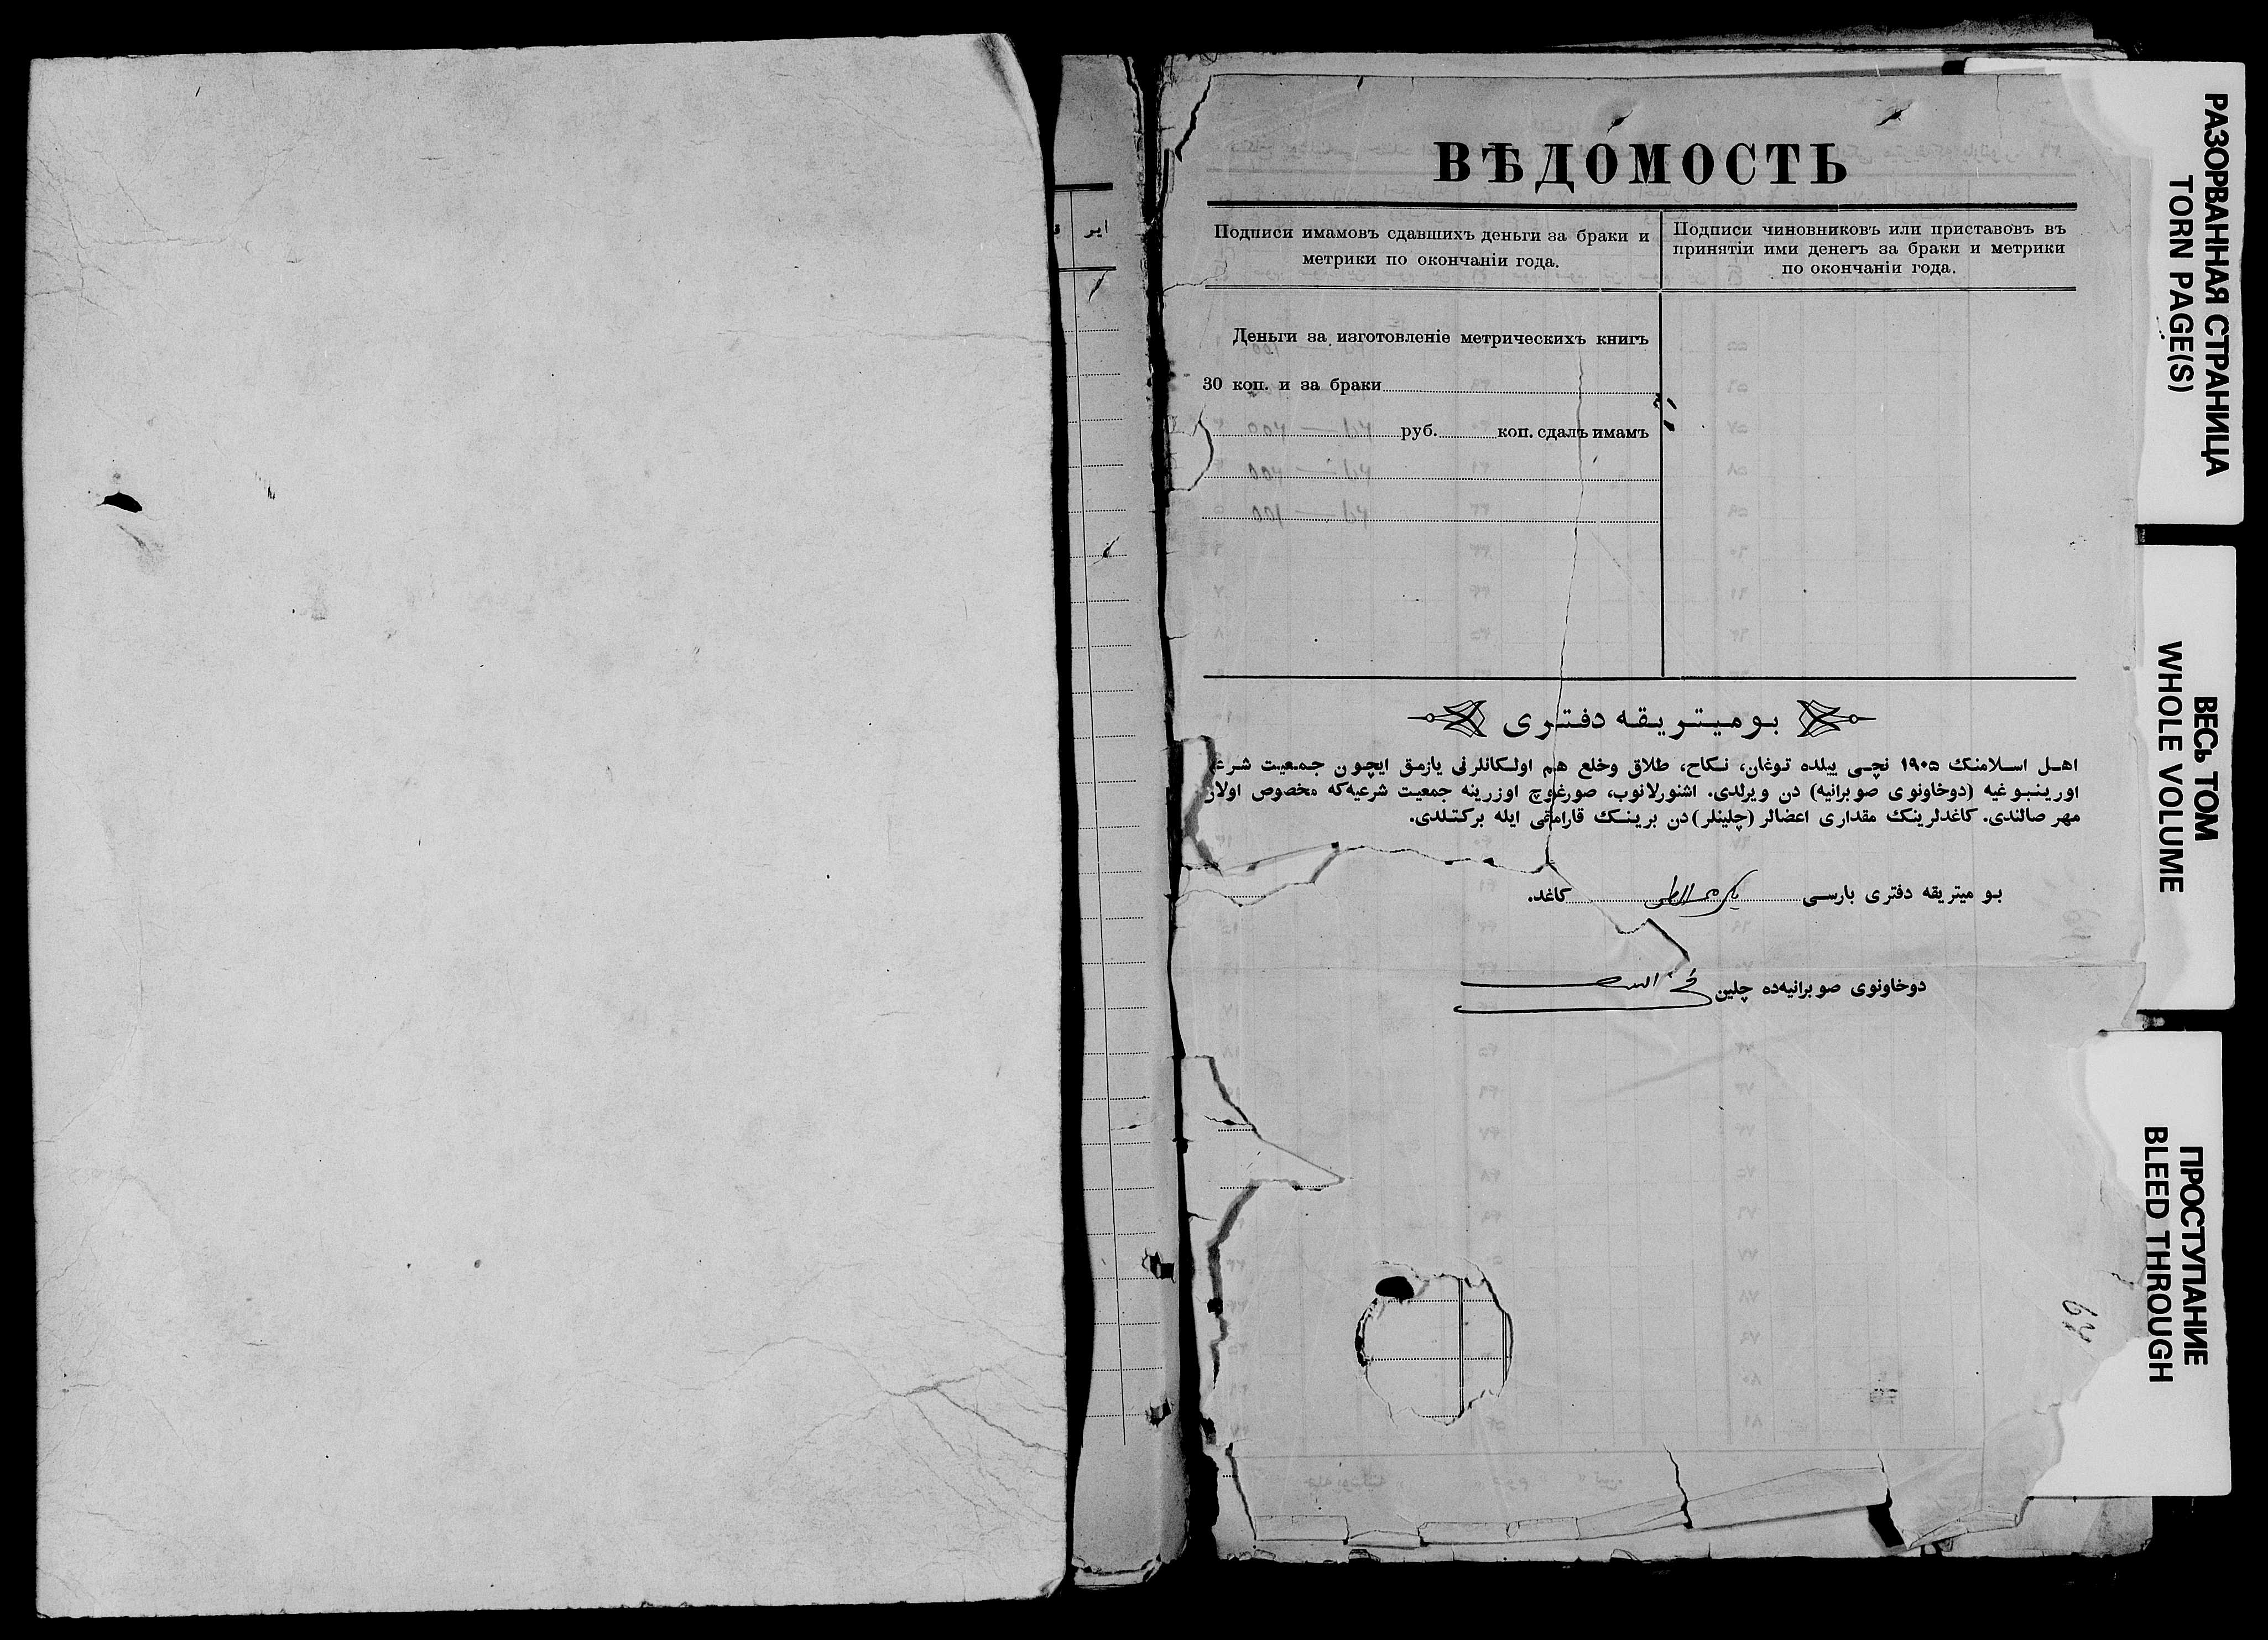 ВѢДОМОСТЬ
Подписи имамовъ сдавшихъ деньги за браки и
метрики по окончаніи года.
Подписи чиновниковъ или приставовъ въ
принятіи ими денегъ за браки и метрики
по окончаніи года.
Деньги за изготовленіе метрическихъ книгъ
30 коп. и за браки
руб. коп. сдалъ имамъ
بو ميتريقه دفترى
اهل اسلامنك ١٩٠٥ نچى ييلده توغان، نكاح، طلاق وخلع هم اولكانلرنى يازمق ايچون جمعيت شرعيه
اورينبوغيه (دوخاونوى صوبرانيه) دن ويرلدى. اشنورلانوب، صورغوچ اوزرينه جمعيت شرعيه‌كه مخصوص اولان
مهر صالندى. كاغدلرينك مقدارى اعضالر (چلينلر) دن برينك قارامقى ايله بركتلدى.
بو ميتريقه دفترى بارسى كاغد.
دوخاونوى صوبرانيه‌ده چلين
62
РАЗОРВАННАЯ СТРАНИЦА
TORN PAGE(S)
ВЕСЬ ТОМ
WHOLE VOLUME
ПРОСТУПАНИЕ
BLEED THROUGH